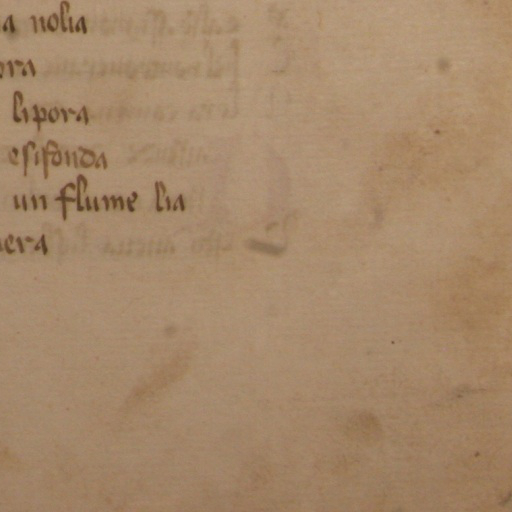 a nolia
ora
lipora
esifonda
un flume lia
era